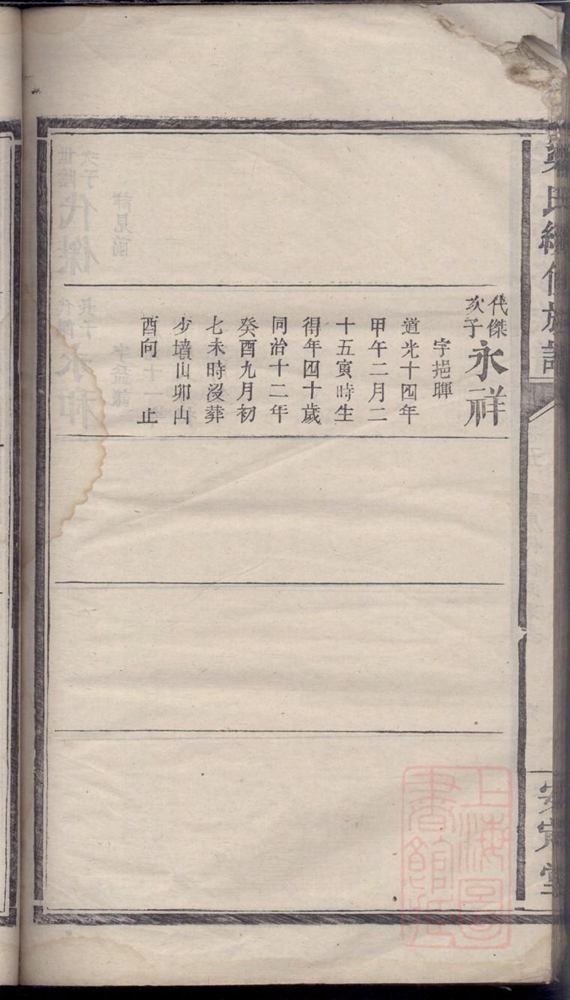 代傑
次子
永祥
字挹暉
道光十四年
甲午二月二
十五寅時生
得年四十歲
同治十二年
癸酉九月初
七未時沒葬
少墻山卯山
酉向 止
氏續修族譜
堂
上海圖
書館藏